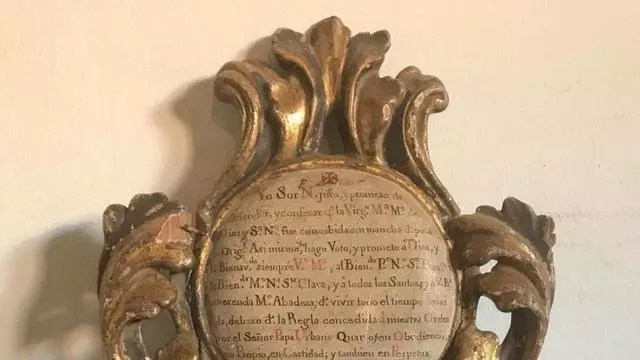 Yo Sor N. juro, y prometo de
defender, y confesar q̃ la Virgn. Mª. Mª. de
Dios y Sª. Nª. fue concebida sin mancha dª. peca
Origl. Asi mismo, hago Voto, y prometo â Dios, y
la Bienavdª. siempre Vª. Mª, al Biendo. Pª. Nª. Sn.
Biendª. Mª. Nª. Sta. Clara, y â todos los Santos, y â Vª.
Reverenda Mª. Abadesa; dª. vivir todo el tiempo
da, debaxo dª. la Regla concedida â nuestra Orden
por el Señor Papa Urbano Quarto, en Obediencia,
Propio, en Castidad; y tambien en Perpetua